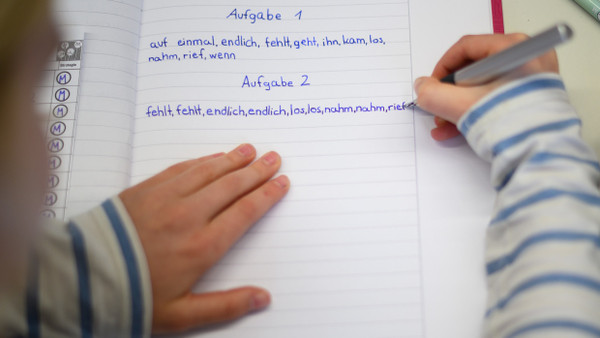 Aufgabe 1
auf einmal, endlich, fehlt, geht, ihn, kam, los,
nahm, rief, wenn
Aufgabe 2
fehlt, fehlt, endlich, endlich, los, los, nahm, nahm, rief
M
M
M
M
M
M